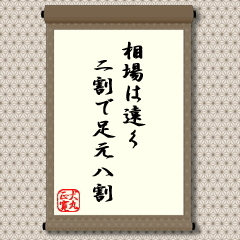 相場は遠く
二割で足元八割